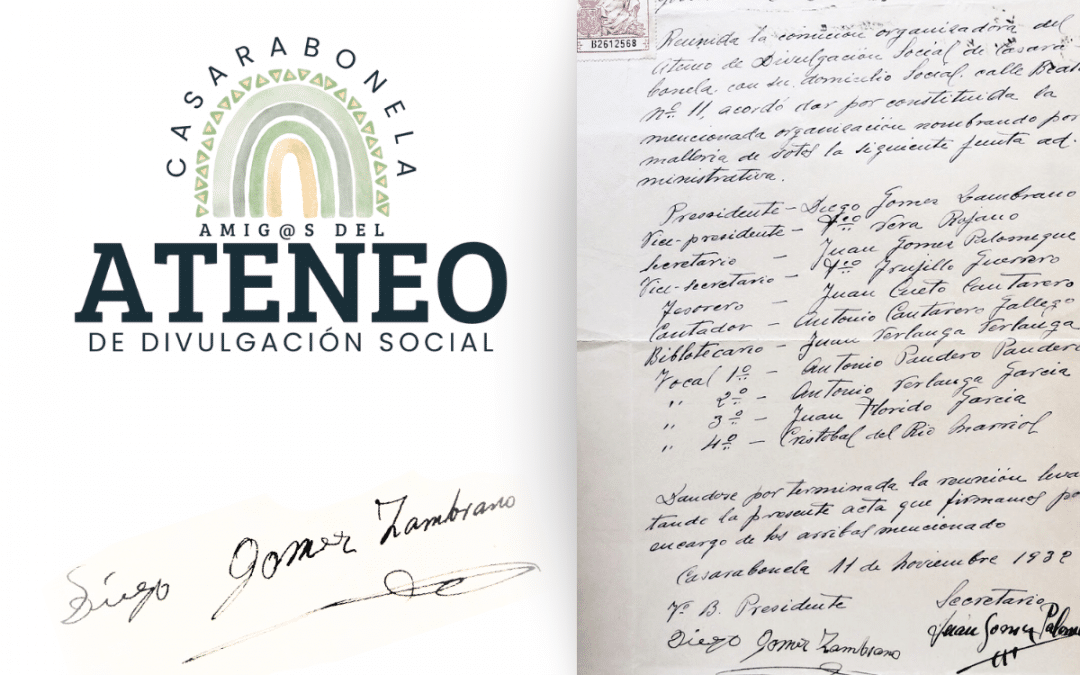 CASARABONELA
AMIG@S DEL
ATENEO
DE DIVULGACIÓN SOCIAL
Diego Gomez Zambrano
B2612568
Reunida la comicion organizadora del
Ateneo de Divulgación Social de Casara
bonela con su domicilio Social calle
nº 11, acordó dar por constituida la
mencionada organización nombrando por
malloria de votos la siguiente junta ad.
ministrativa.
Pressidente - Diego Gomez Zambrano
Vice-presidente - Fco Vera Rojano
Secretario - Juan Gomez Palomeque
Vice-secretario - Fco Trujillo Guerrero
Tesorero - Juan Cueto Cantarero
Contador - Antonio Cantarero Gallego
Biblotecario - Juan Verlanga Verlanga
Vocal 1º - Antonio Pandero Pandero
" 2º - Antonio Verlanga Garcia
" 3º - Juan Florido Garcia
" 4º - Cristobal del Rio
Dandose por terminada la reunión leva
tando la presente acta que firmamos po
encargo de los arribas mencionado
Casarabonela 11 de noviembre 1932
Vº B. Presidente
Secretario
Diego Gomez Zambrano
Juan Gomez Palom